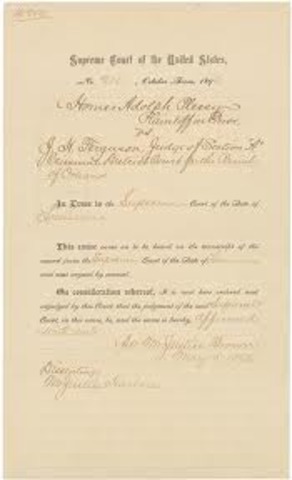 Supreme Court of the United States,
No. 210, October Term, 189
Homer Adolph Plessy
Plaintiff in Error,
vs
J. H. Ferguson, Judge of Section "A"
Criminal District Court for the Parish
of Orleans
In Error to the Supreme Court of the State of
Louisiana
This cause came on to be heard on the transcript of the
record from the Supreme Court of the State of Louisiana
and was argued by counsel.
On consideration whereof, It is now here ordered and
adjudged by this Court that the judgment of the said Supreme
Court, in this cause, be, and the same is hereby, Affirmed
with costs
Mr. Justice Brown
May 18, 1896
Dissenting:
Mr. Justice Harlan